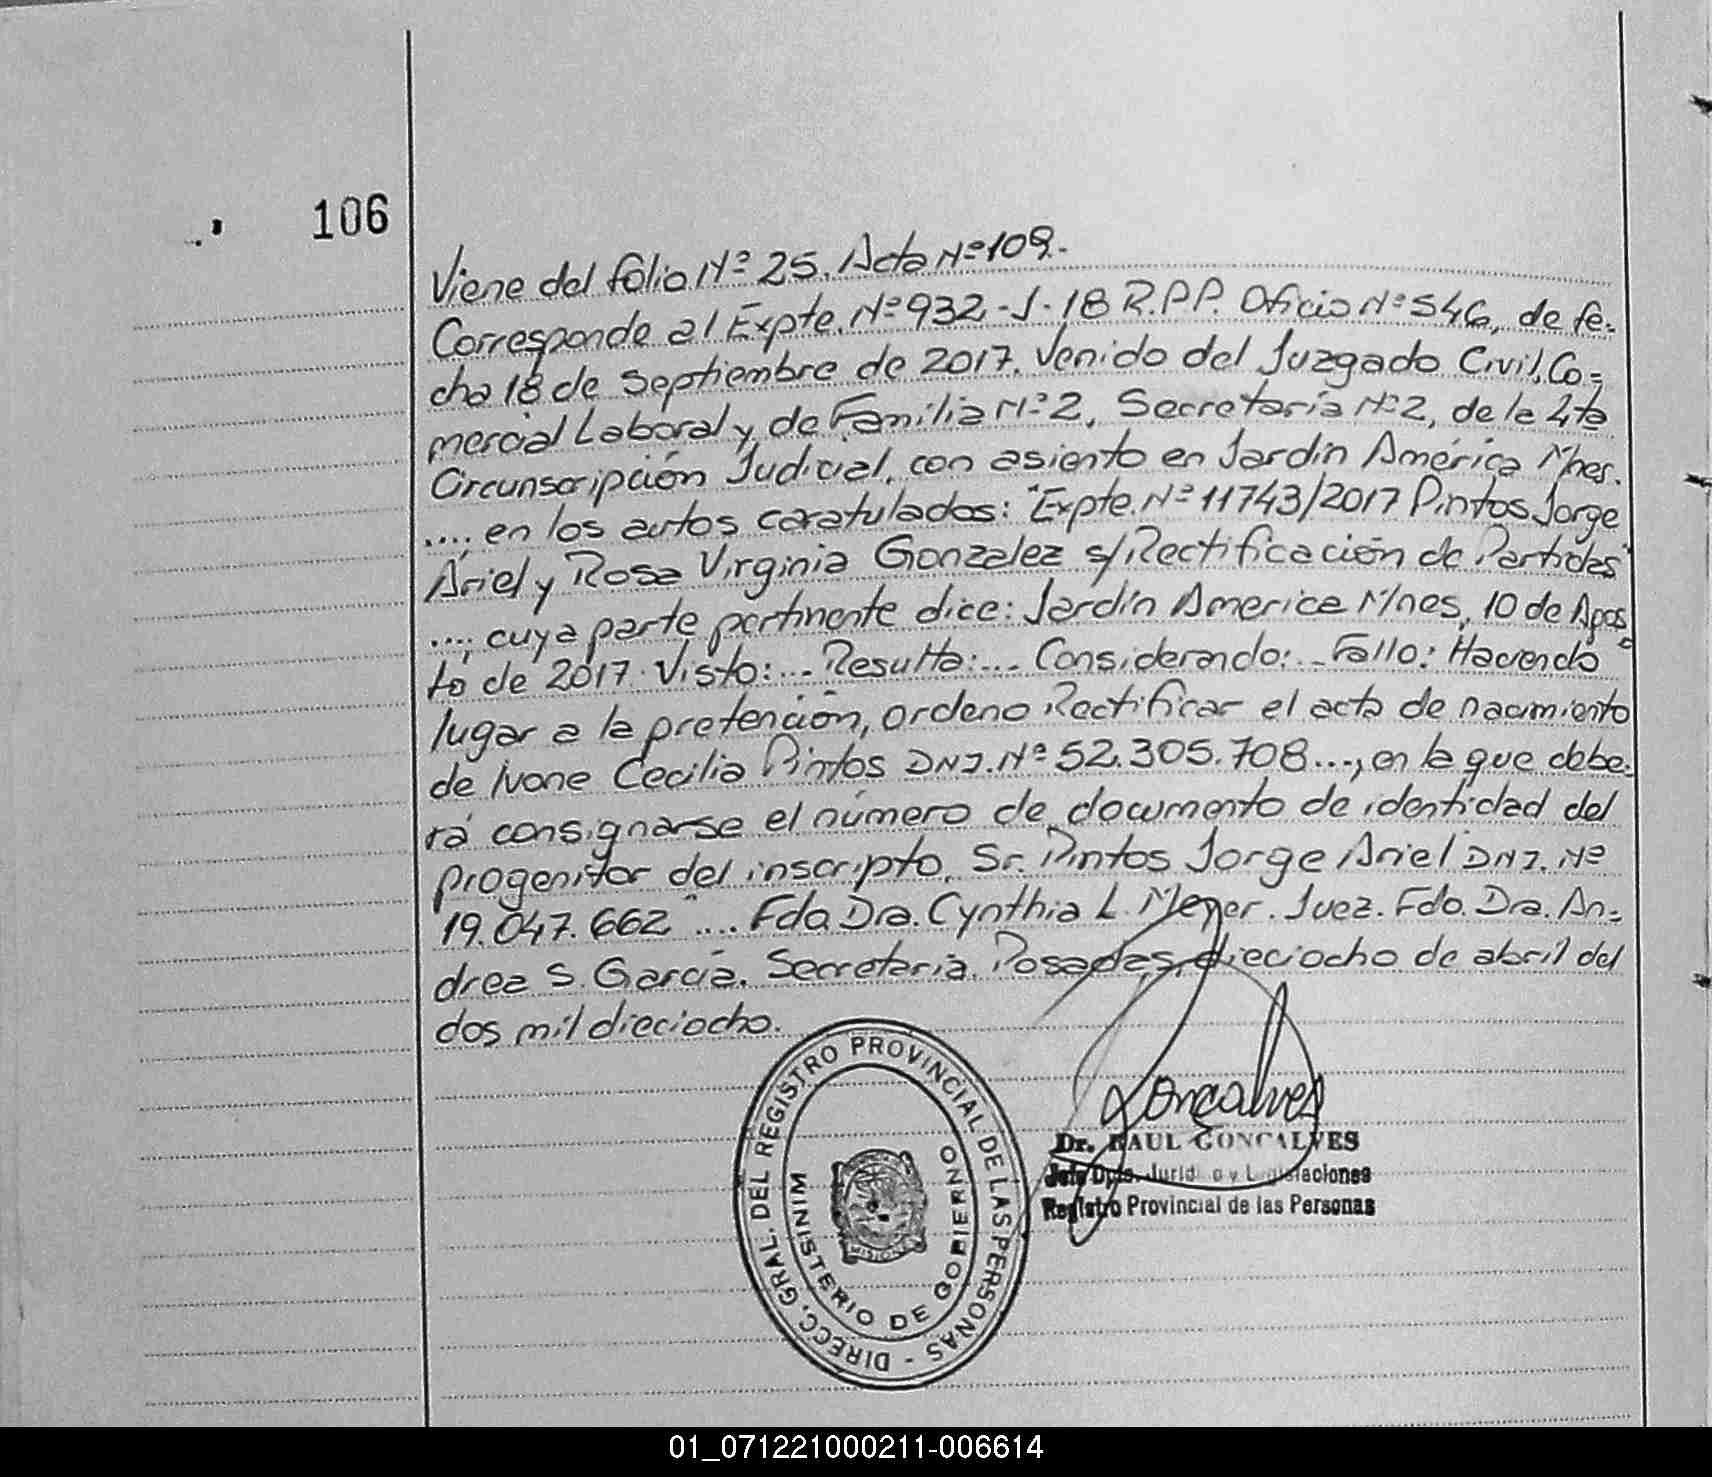 106
Viene del folio Nº 25. Acta Nº 109.-
Corresponde al Expte. Nº 932-J-18 R.P.P. Oficio Nº 546, de fe-
cha 18 de septiembre de 2017. Venido del Juzgado Civil, Co-
mercial Laboral y de Familia Nº 2, Secretaría Nº 2, de la 4ta
Circunscripción Judicial, con asiento en Jardín América Mnes.
.... en los autos caratulados: "Expte. Nº 11743/2017 Pintos Jorge
Ariel y Rosa Virginia Gonzalez s/Rectificación de Partidas"
...., cuya parte pertinente dice: Jardín America Mnes, 10 de Agos-
to de 2017. Visto:... Resulta:... Considerando:... Fallo: "Haciendo
lugar a la pretención, ordeno Rectificar el acta de nacimiento
de Ivone Cecilia Pintos DNI. Nº 52.305.708..., en la que debe-
rá consignarse el número de documento de identidad del
progenitor del inscripto, Sr. Pintos Jorge Ariel DNI. Nº
19.047.662" .... Fdo Dra. Cynthia L. Meyer. Juez. Fdo. Dra. An-
drea S. García. Secretaria. Posadas, dieciocho de abril del
dos mil dieciocho.
Goncalves
Dr. RAUL GONCALVES
Jefe Dpto. Juridico y Legislaciones
Registro Provincial de las Personas
DIRECC. GRAL. DEL REGISTRO PROVINCIAL DE LAS PERSONAS -
MINISTERIO DE GOBIERNO
MISIONES
01_071221000211-006614